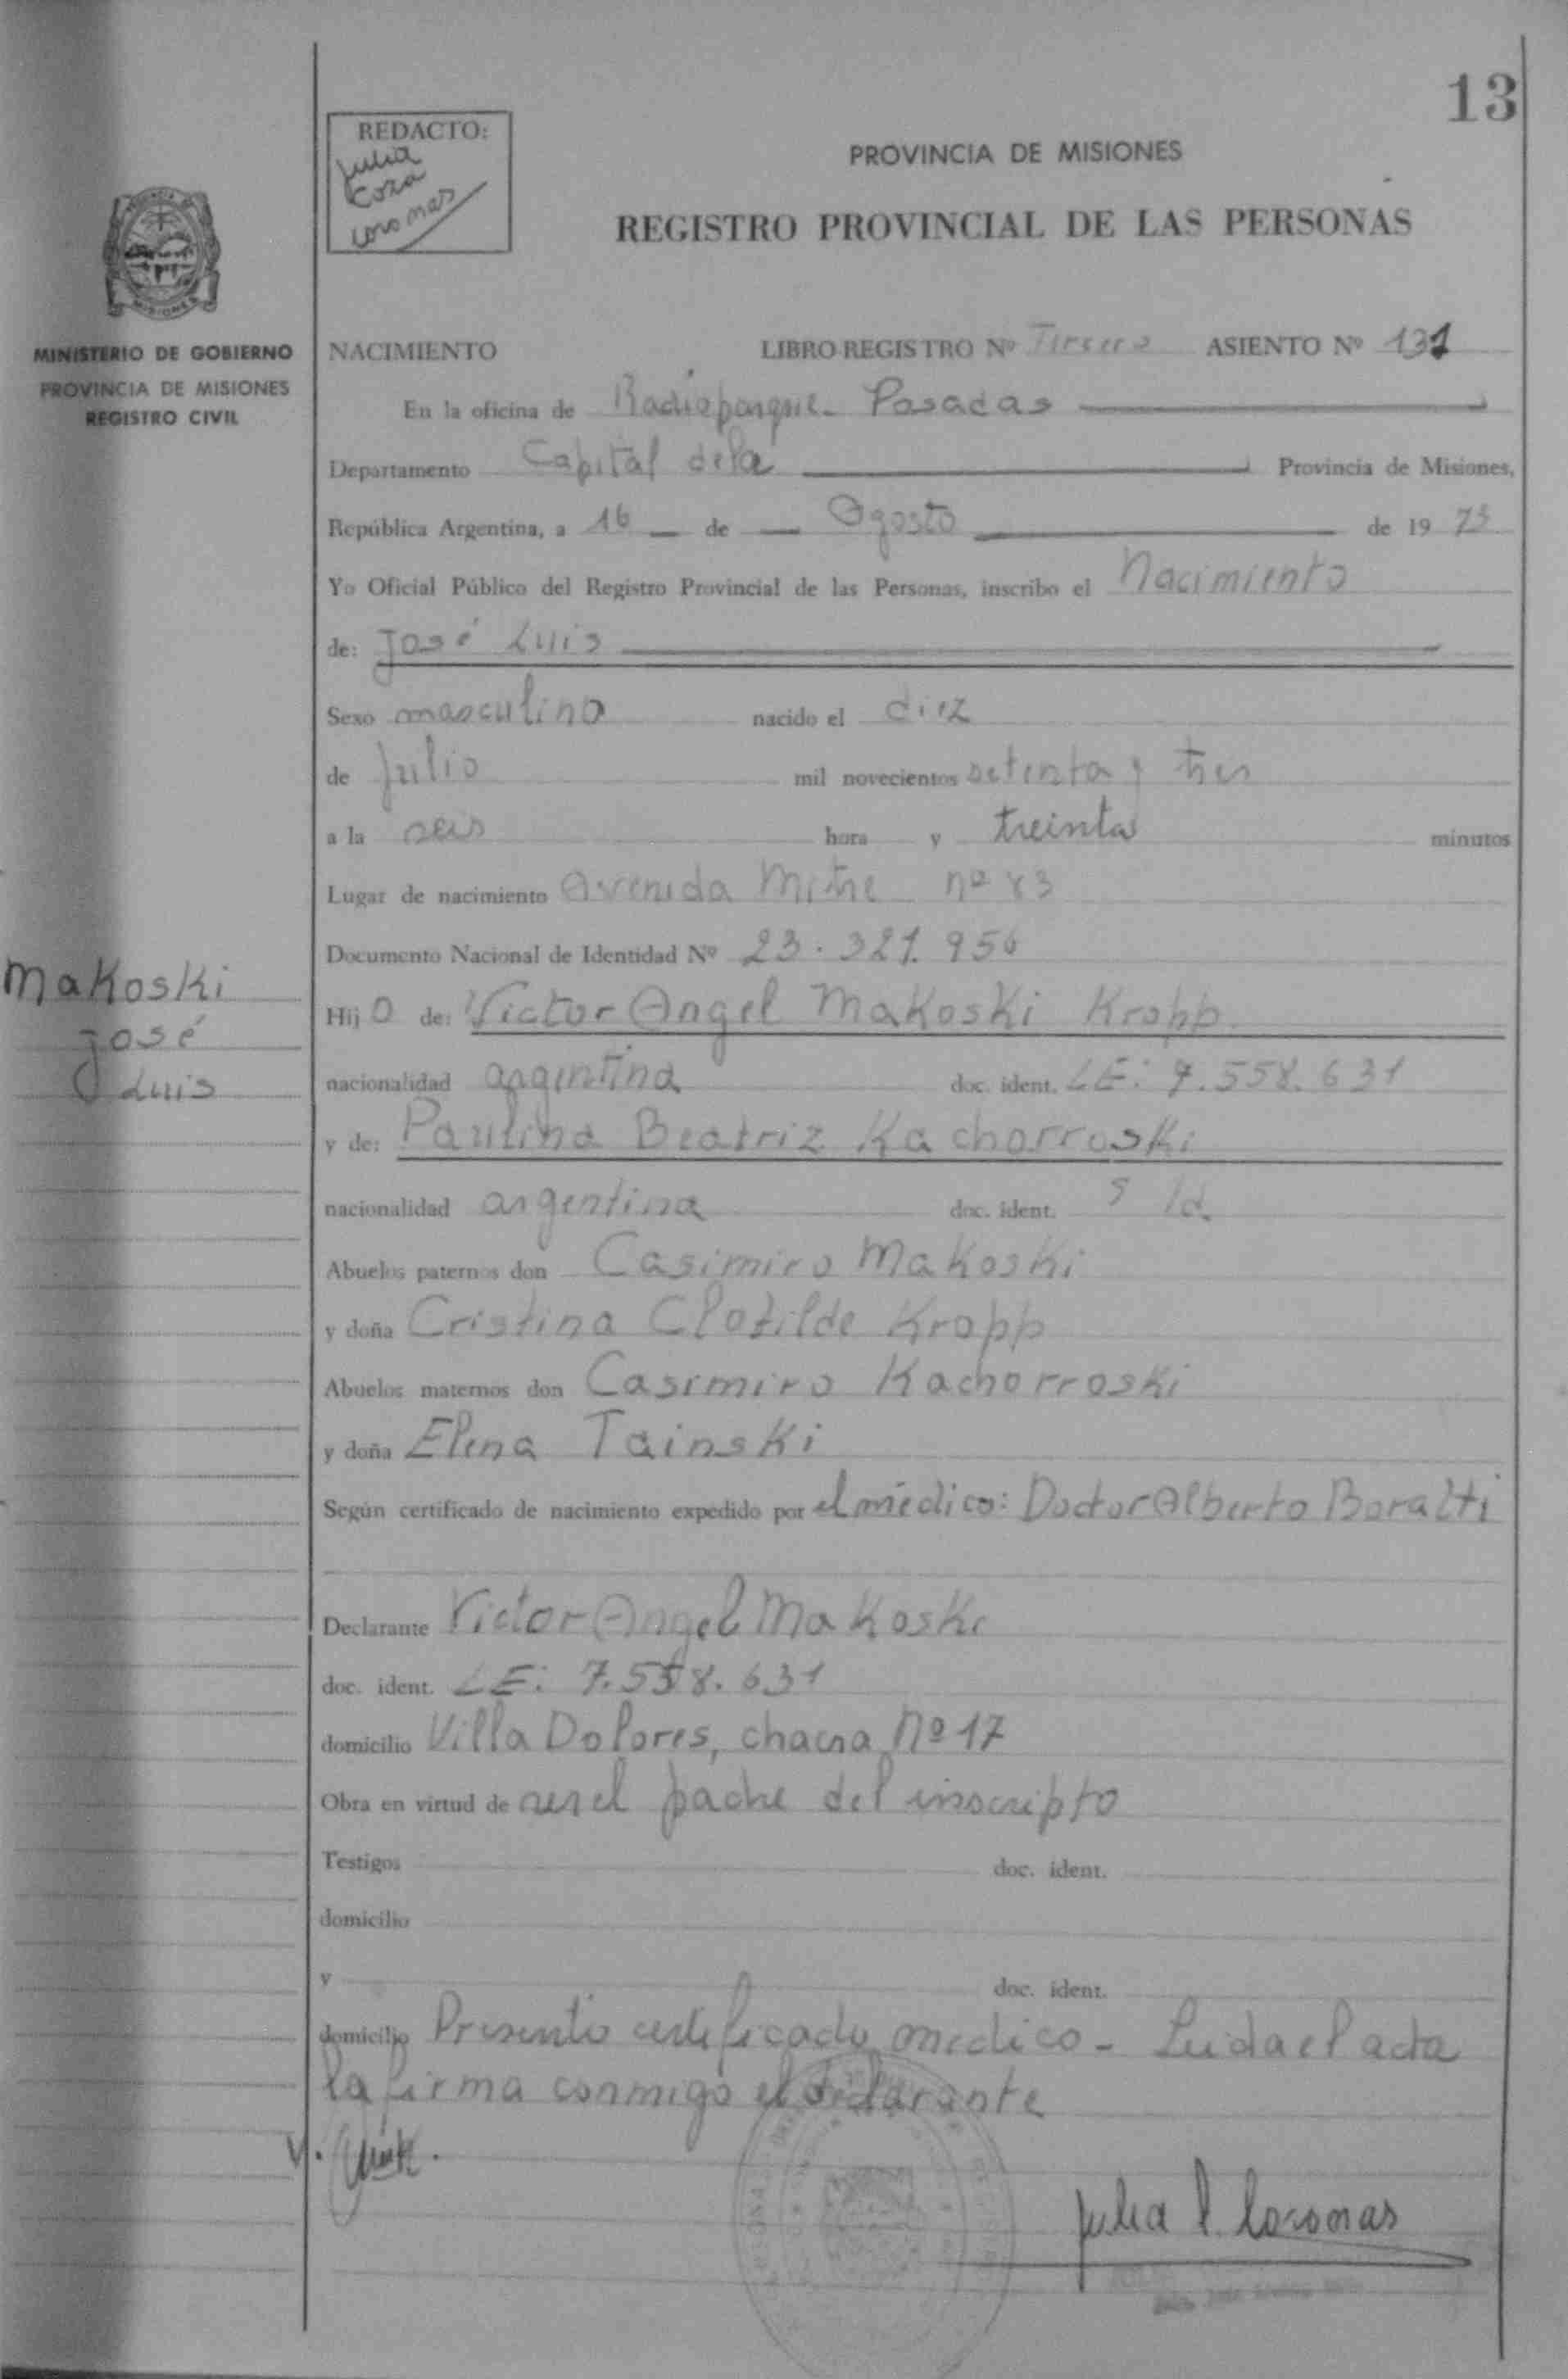 13
REDACTO:
Julia
Coza
coromas
PROVINCIA DE MISIONES
REGISTRO PROVINCIAL DE LAS PERSONAS
MISIONES
MINISTERIO DE GOBIERNO
PROVINCIA DE MISIONES
REGISTRO CIVIL
NACIMIENTO LIBRO REGISTRO Nº Tercero ASIENTO Nº 131
En la oficina de Radioparque - Posadas
Departamento Capital dela Provincia de Misiones,
República Argentina, a 16 de Agosto de 1973
Yo Oficial Público del Registro Provincial de las Personas, inscribo el Nacimiento
de: José Luis
Sexo masculino nacido el diez
de Julio mil novecientos setenta y tres
a la seis hora y treinta minutos
Lugar de nacimiento Avenida Mitre nº 83
Documento Nacional de Identidad Nº 23.321.956
Makoski
José
Luis
Hijo de: Victor Angel Makoski Kropp
nacionalidad argentina doc. ident. LE: 7.558.631
y de: Paulina Beatriz Kachorroski
nacionalidad argentina doc. ident. S/d.
Abuelos paternos don Casimiro Makoski
y doña Cristina Clotilde Kropp
Abuelos maternos don Casimiro Kachorroski
y doña Elena Tainski
Según certificado de nacimiento expedido por el médico: Doctor Alberto Boratti
Declarante Victor Angel Makoski
doc. ident. LE: 7.558.631
domicilio Villa Dolores, chacra Nº 17
Obra en virtud de ser el padre del inscripto
Testigos doc. ident.
domicilio
y doc. ident.
domicilio Presento certificado medico - Leida el acta
la firma conmigo el declarante
Julia C. Coromas